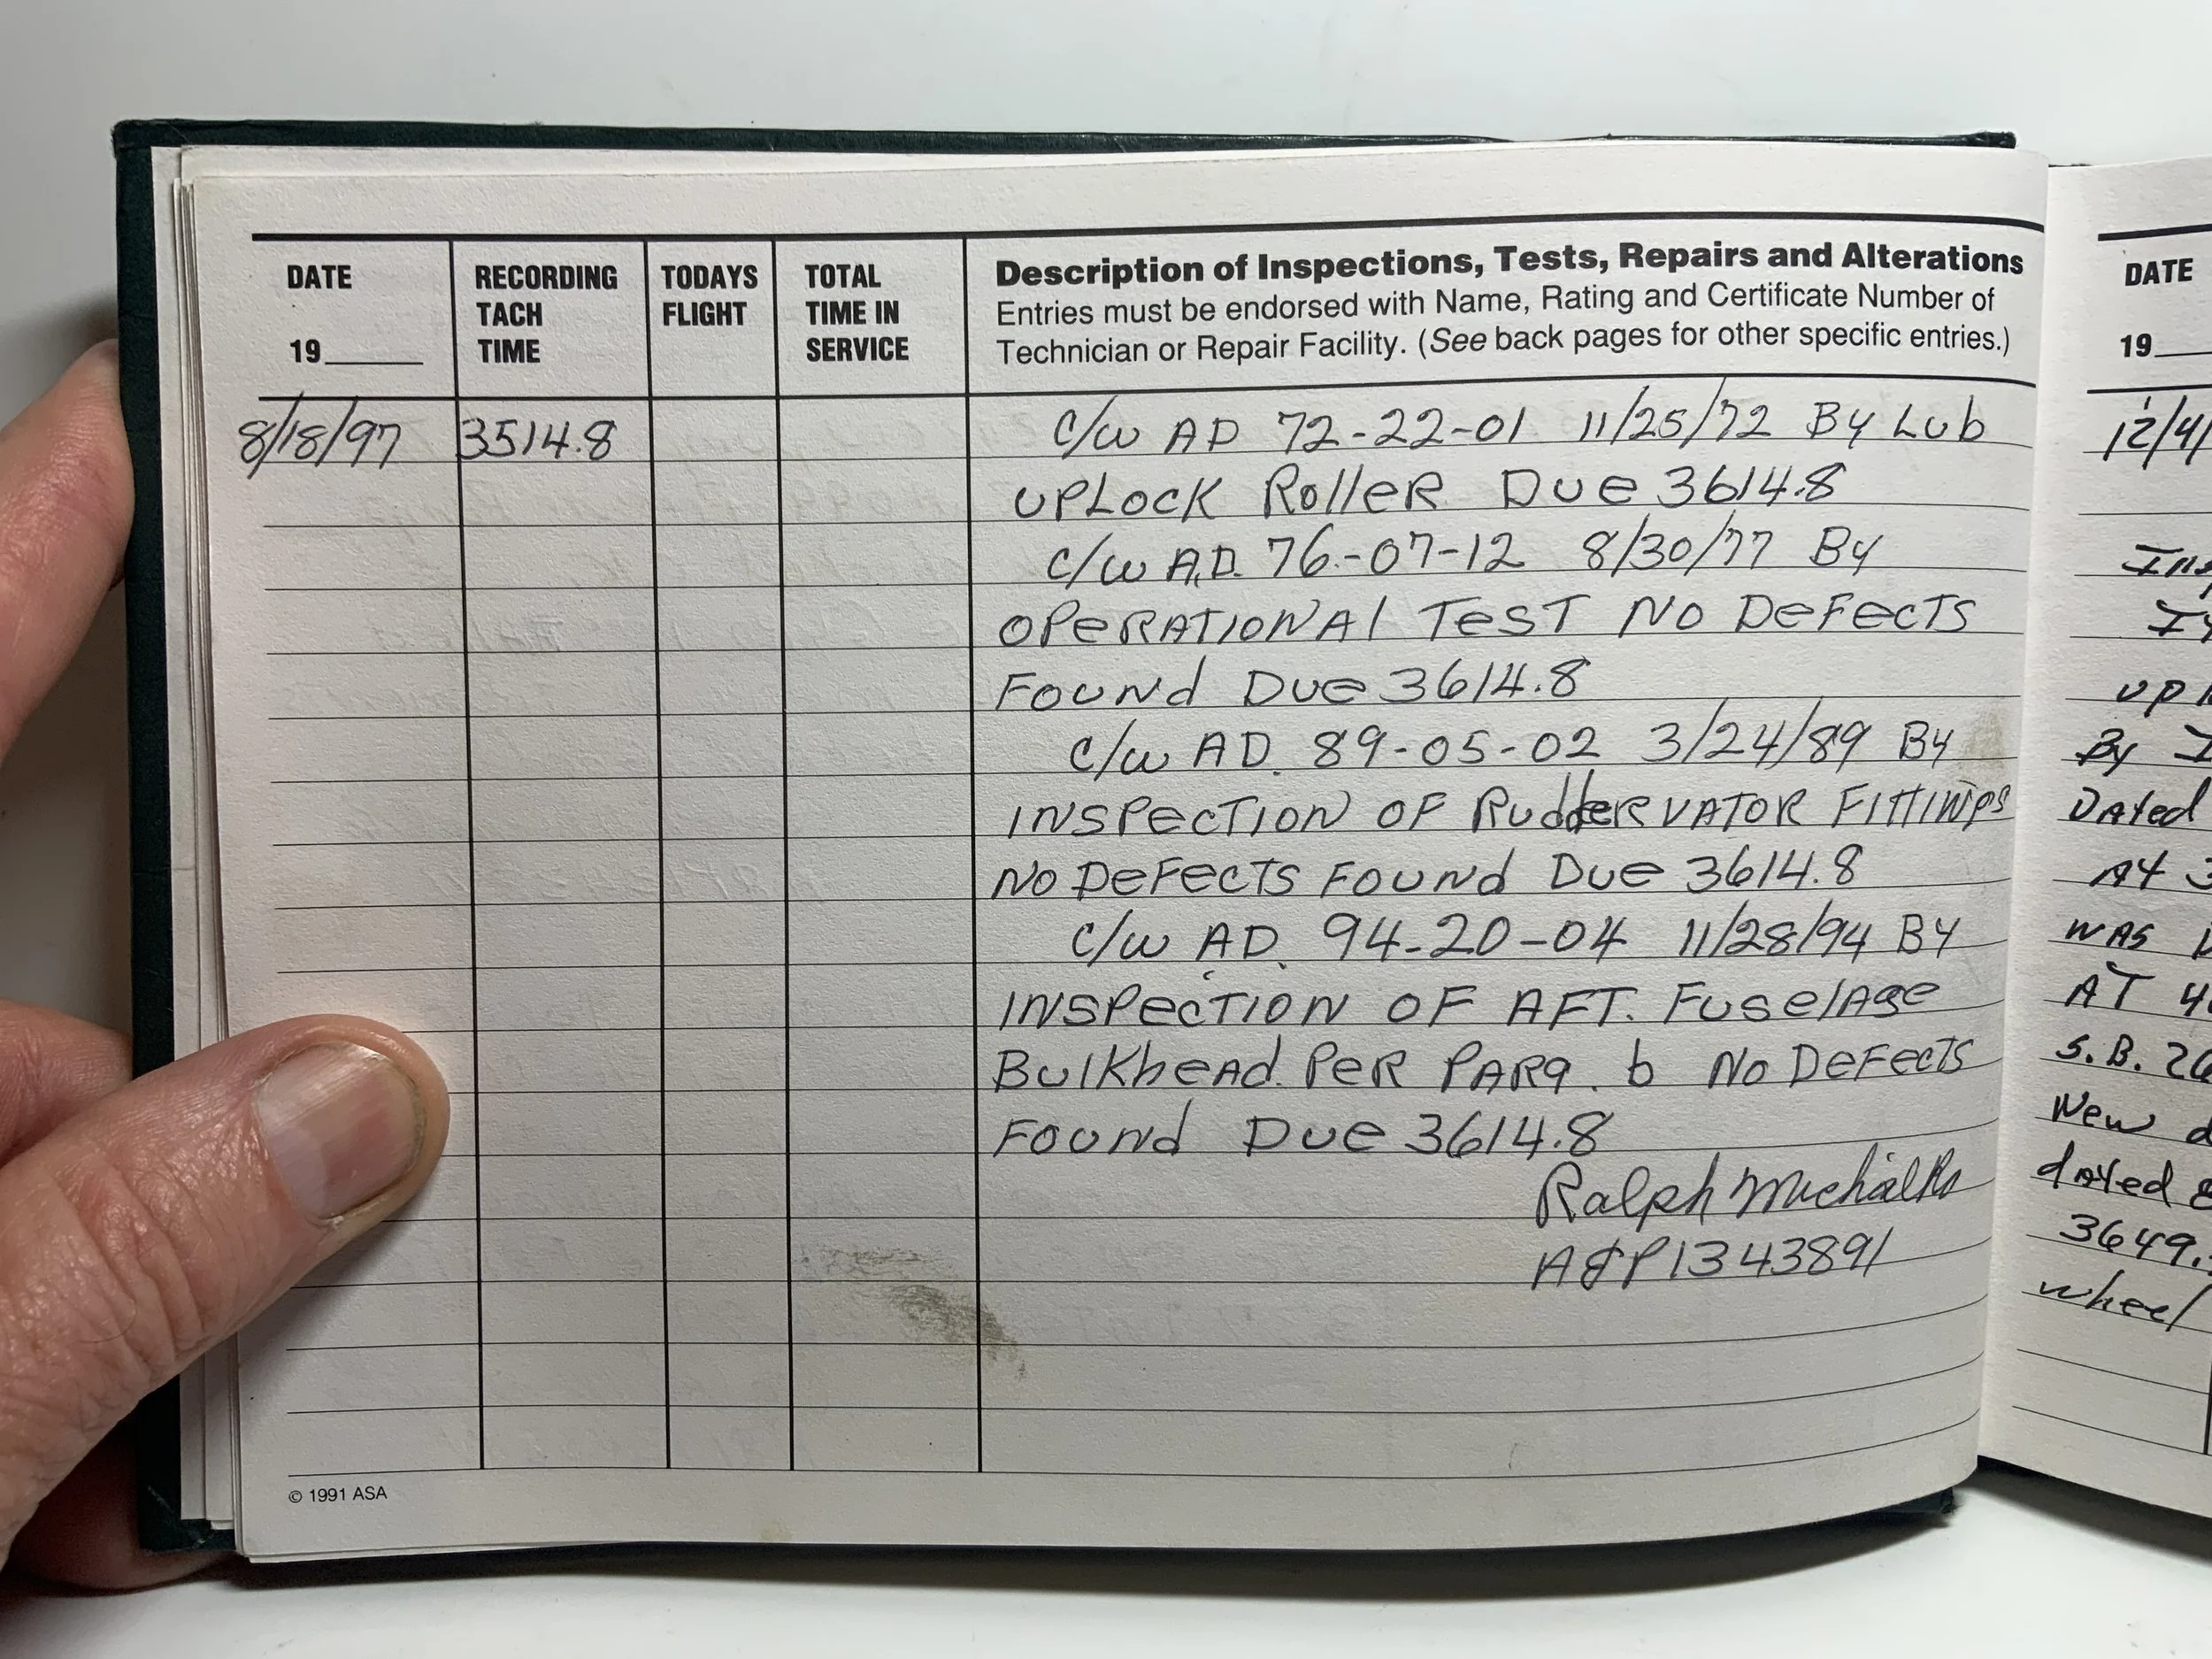 DATE
19____
RECORDING
TACH
TIME
TODAYS
FLIGHT
TOTAL
TIME IN
SERVICE
Description of Inspections, Tests, Repairs and Alterations
Entries must be endorsed with Name, Rating and Certificate Number of
Technician or Repair Facility. (See back pages for other specific entries.)
8/18/97 3514.8 C/W AD 72-22-01 11/25/72 By Lub
UPLOCK ROlleR Due 3614.8
C/W A.D. 76-07-12 8/30/77 By
OPeRATIONAl TeST NO DeFeCTS
FOUNd Due 3614.8
C/W AD. 89-05-02 3/24/89 By
INSPeCTION OF RuddeRVATOR FITTINgs
NO DeFeCTS FOUNd Due 3614.8
C/W AD. 94-20-04 11/28/94 BY
INSPeCTION OF AFT. FuselAge
BulKheAd. PeR PARA. b NO DeFeCTS
FOUNd Due 3614.8
Ralph
A&P 1343891
© 1991 ASA
DATE
19
12/4/
UP
By
DATed
AT 3
WAS
AT 4
S.B. 26
New d
dATed 8
3649.
wheel